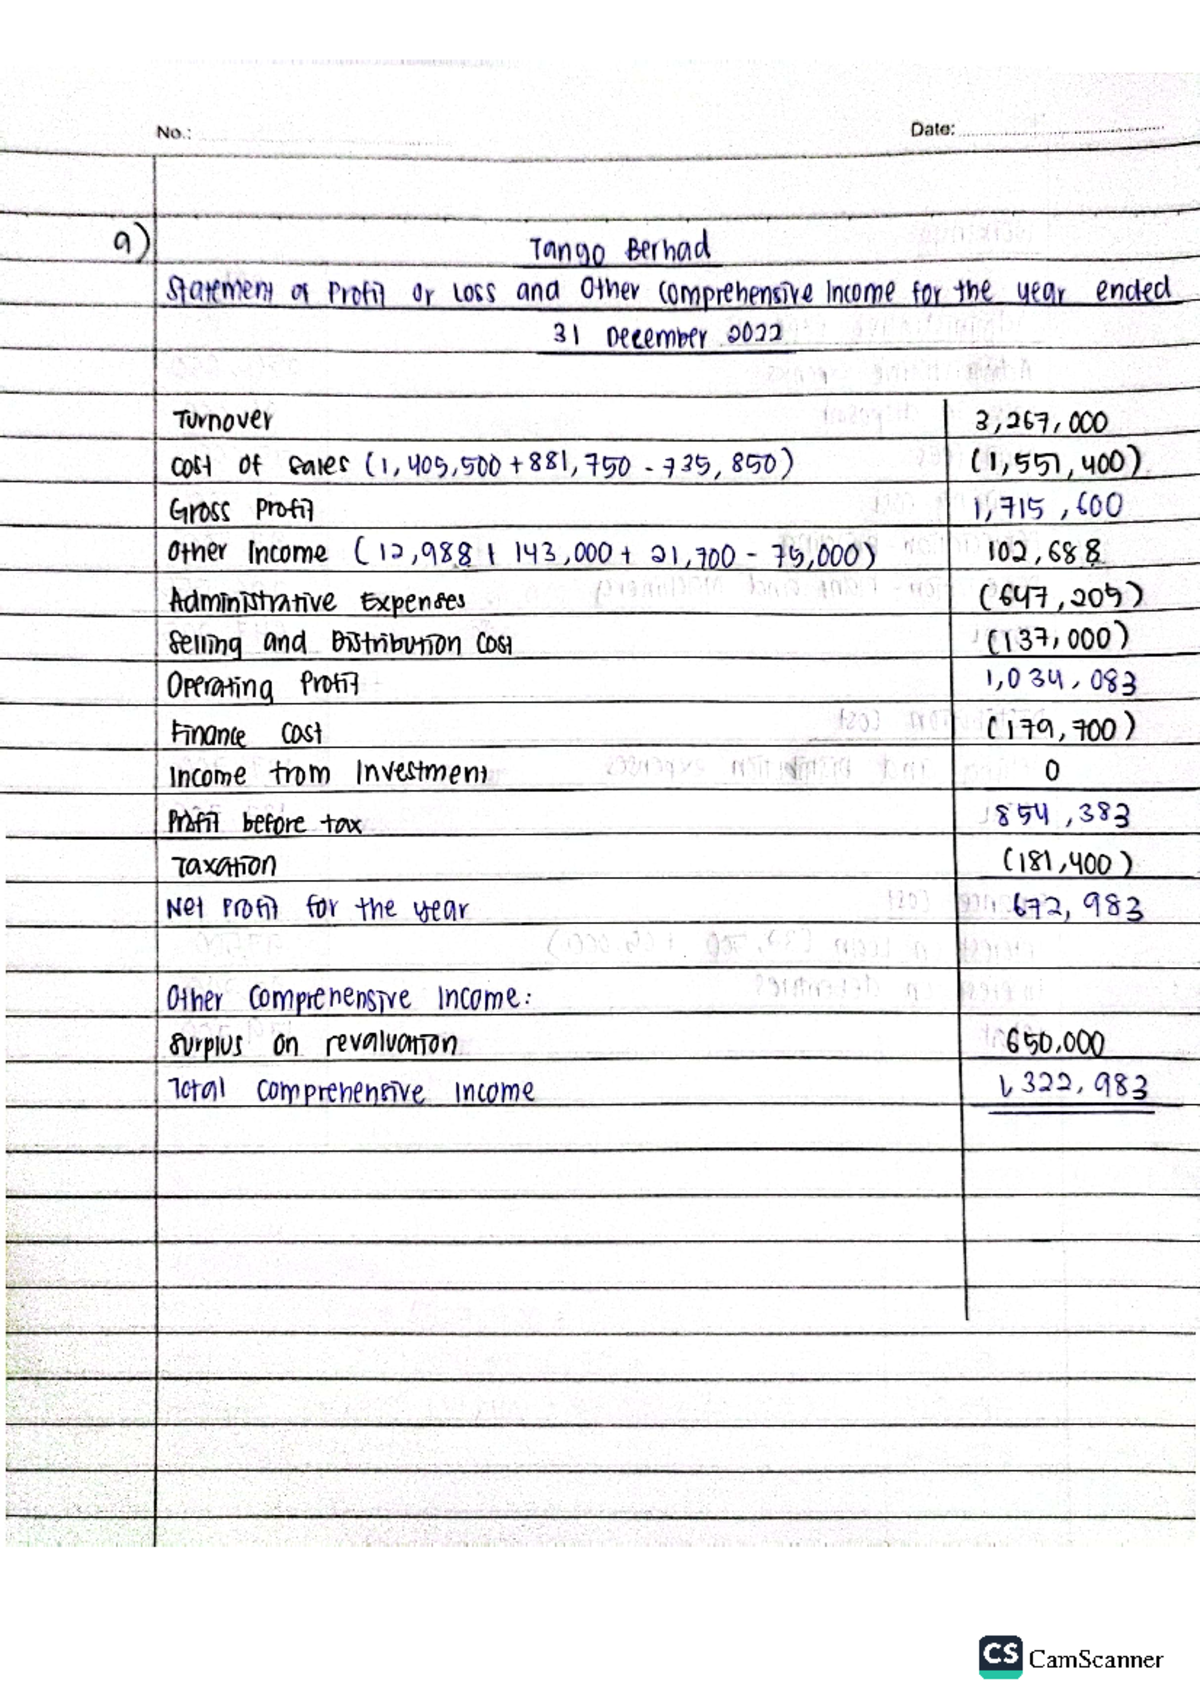 No.:
Date:
a)
Tango Berhad
Statement of Profit or Loss and Other Comprehensive Income for the year ended
31 December 2022
Turnover 3,267,000
Cost of sales (1,405,500 + 881,750 - 735,850) (1,551,400)
Gross Profit 1,715,600
Other Income (12,988 + 143,000 + 21,700 - 75,000) 102,688
Administrative Expenses (647,205)
Selling and Distribution Cost (137,000)
Operating Profit 1,034,083
Finance Cost (179,700)
Income from Investment 0
Profit before tax 854,383
Taxation (181,400)
Net Profit for the year 672,983
Other Comprehensive Income:
Surplus on revaluation 650,000
Total Comprehensive Income 1,322,983
CS CamScanner